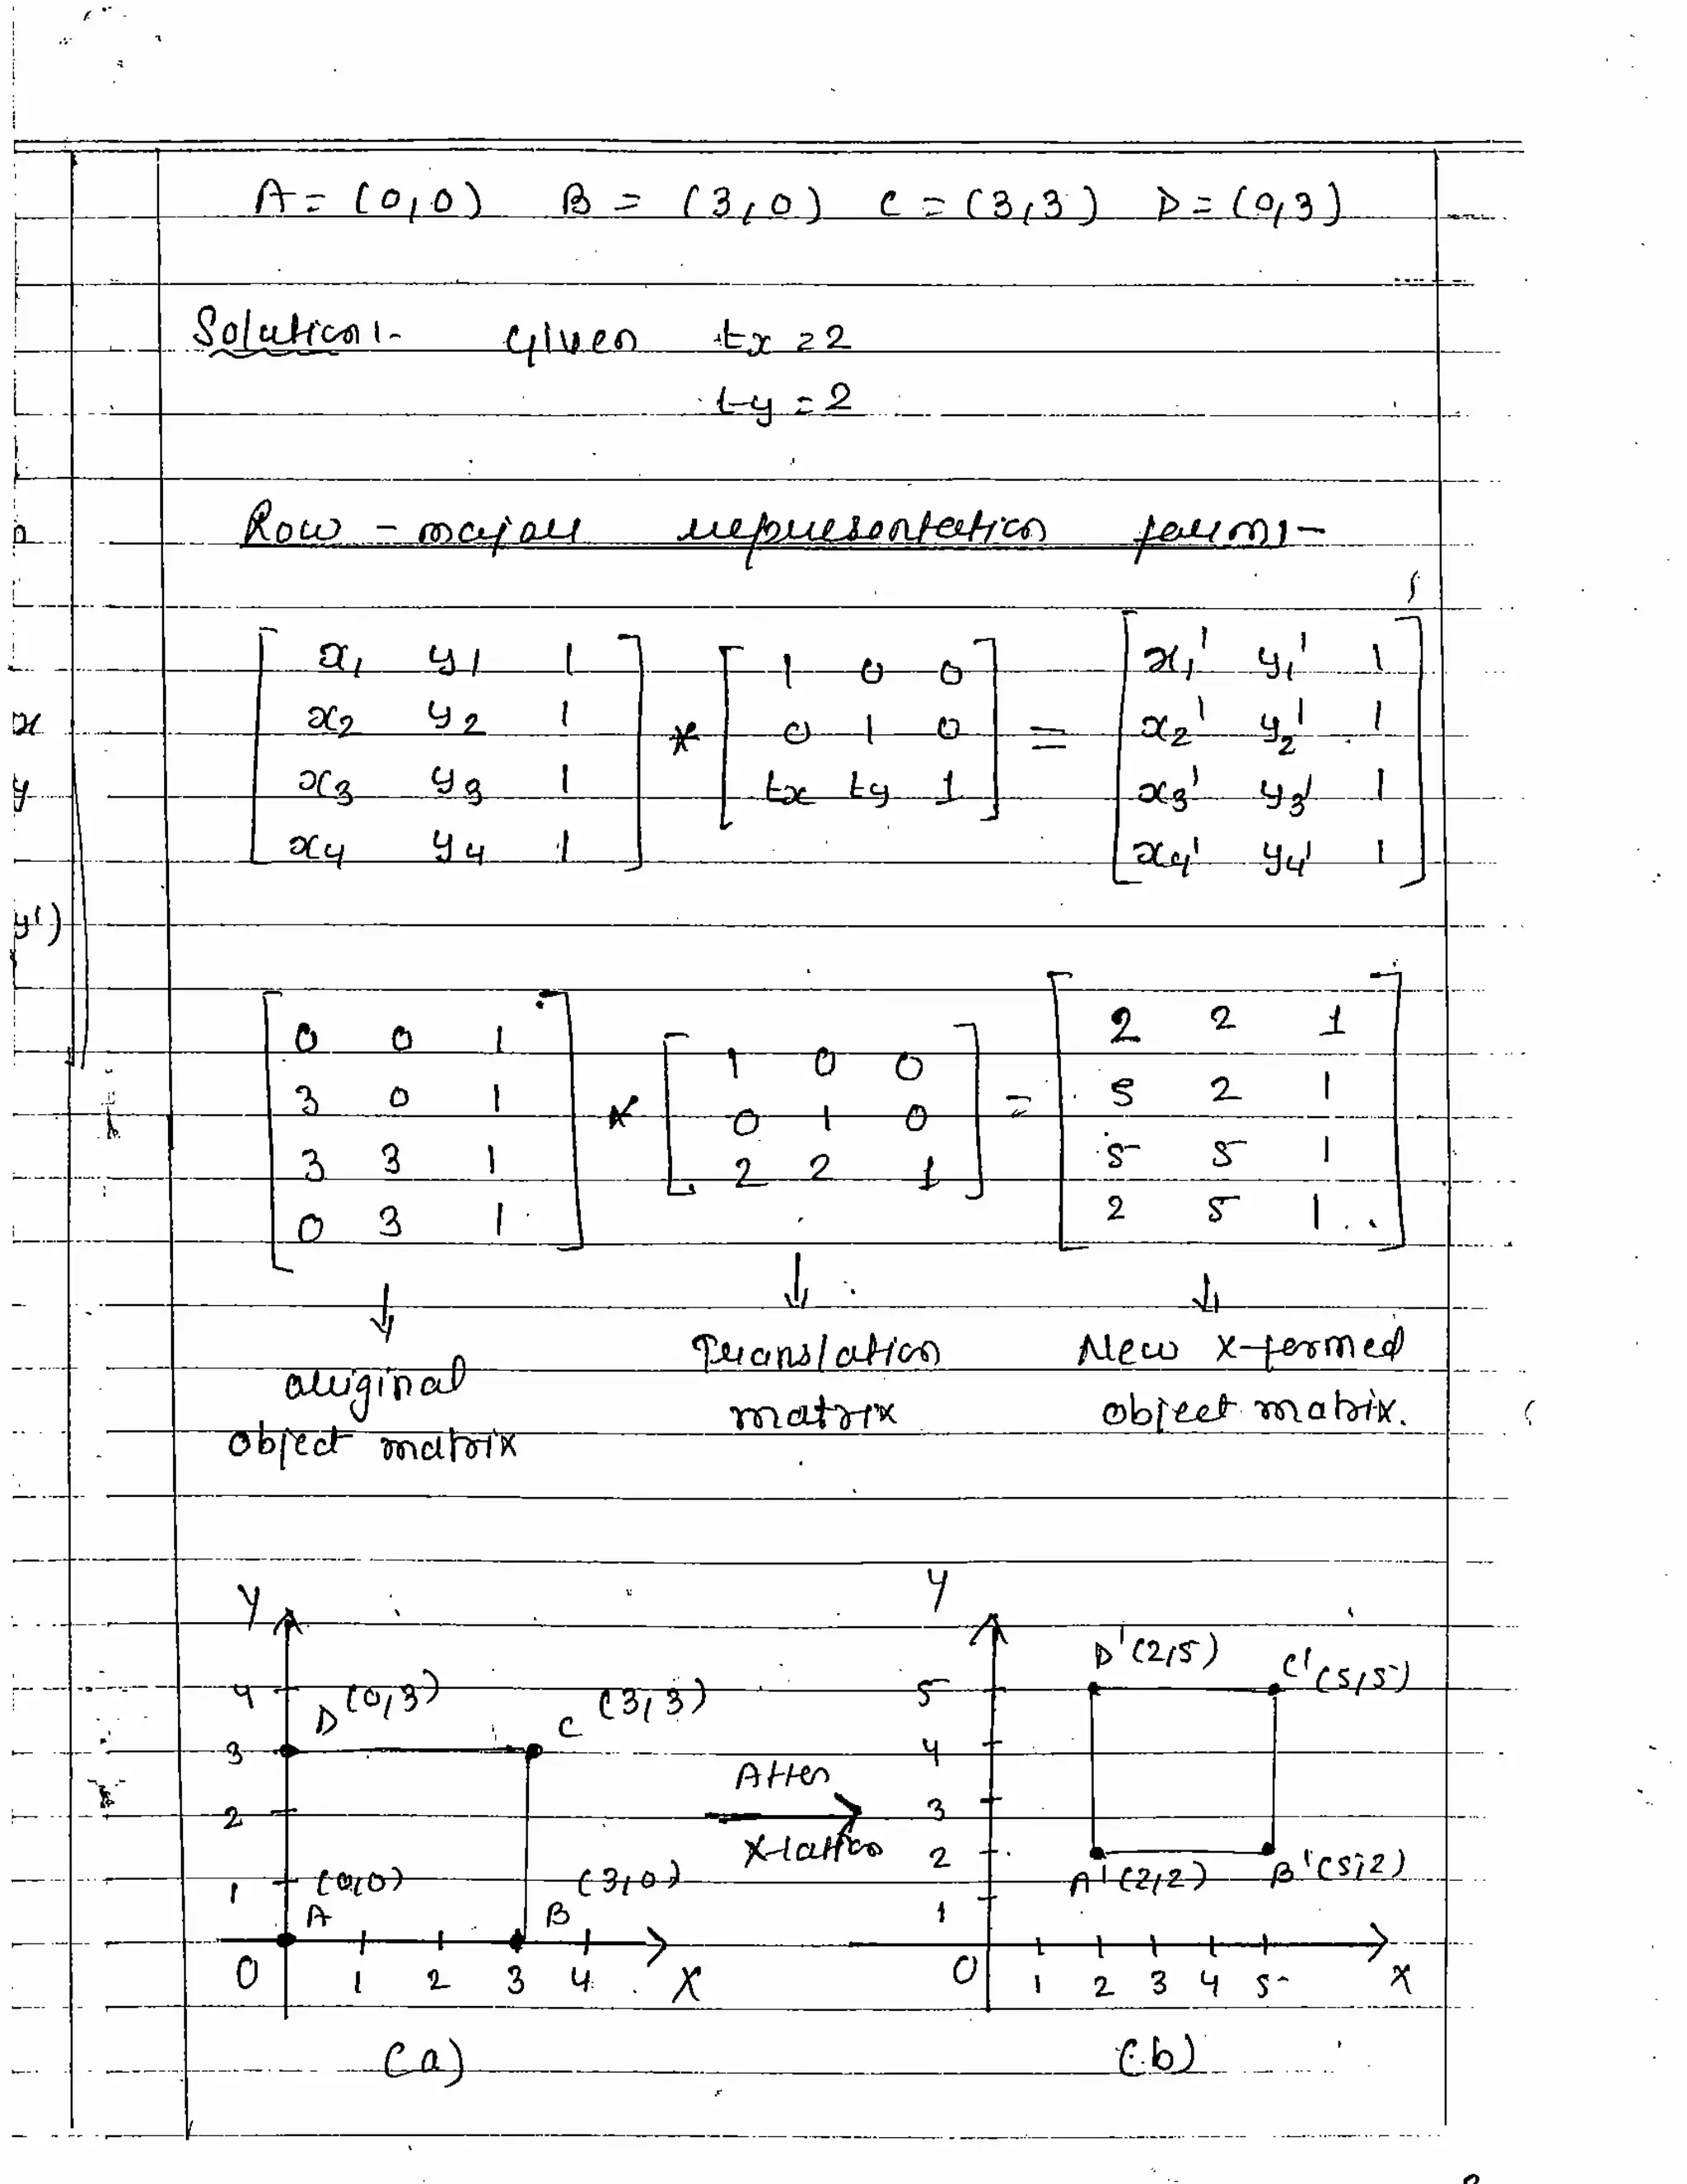 A = (0,0) B = (3,0) C = (3,3) D = (0,3)
Solution:- Given tx = 2
ty = 2
Row - major representation form:-
x1 y1 1
x2 y2 1
x3 y3 1
x4 y4 1
*
1 0 0
0 1 0
tx ty 1
=
x1' y1' 1
x2' y2' 1
x3' y3' 1
x4' y4' 1
x
y
y')
0 0 1
3 0 1
3 3 1
0 3 1
*
1 0 0
0 1 0
2 2 1
=
2 2 1
5 2 1
5 5 1
2 5 1
↓ ↓ ↓
original
object matrix
Translation
matrix
New x-formed
object matrix.
Y
4
3
2
1
0 1 2 3 4 X
D (0,3)
C (3,3)
(0,0)
A
(3,0)
B
(a)
After
X-lation
Y
5
4
3
2
1
0 1 2 3 4 5 X
D'(2,5)
C'(5,5)
A'(2,2)
B'(5,2)
(b)